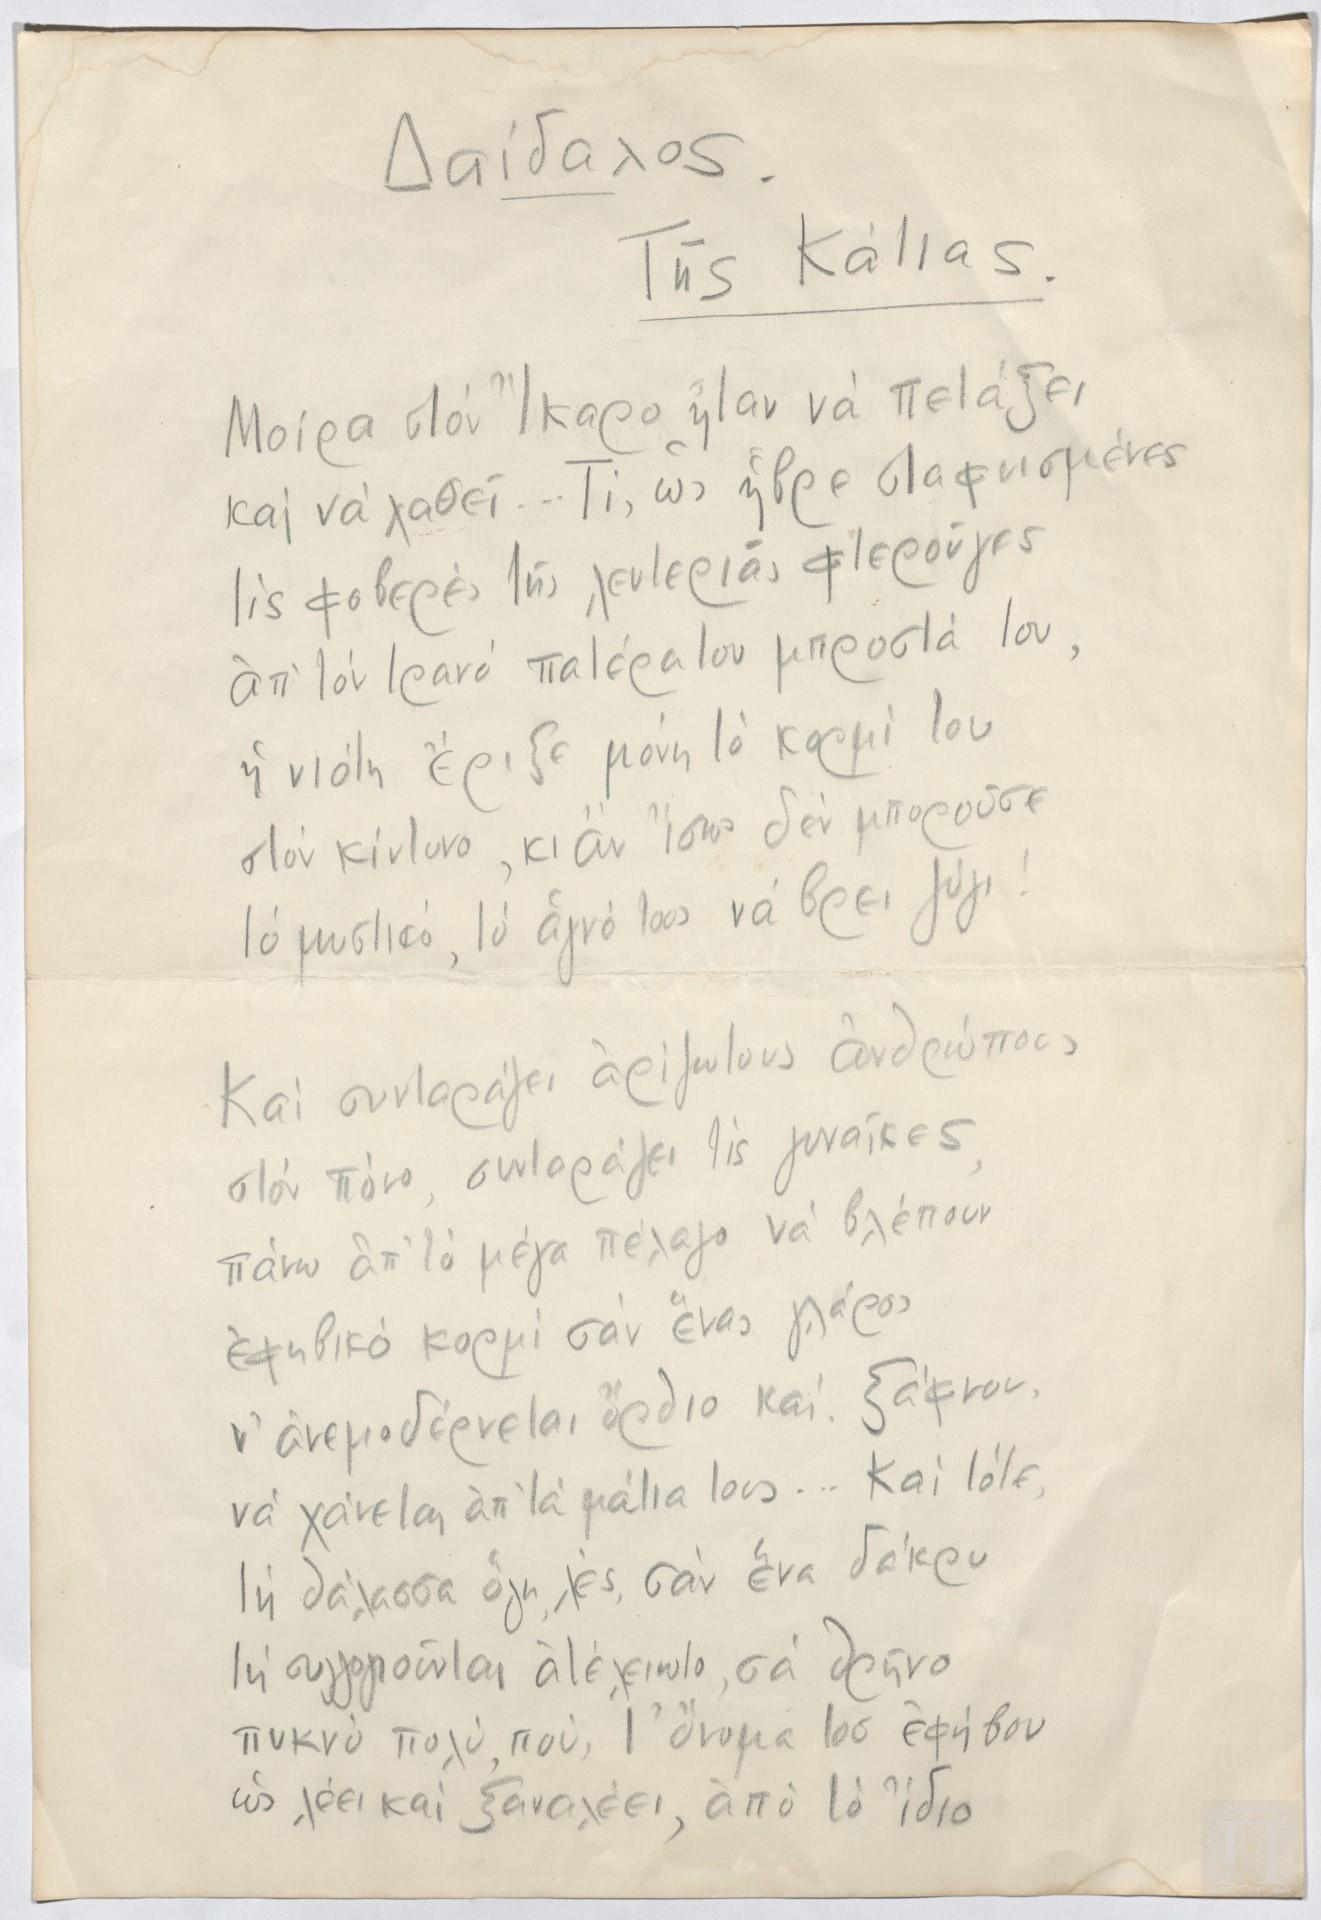 Δαίδαλος.
Τῆς Κάτιας.
Μοίρα στόν Ἴκαρο ἦταν νά πετάξει
καί νά χαθεῖ... Τί, ὡς ηὗβρε σταφνισμένες
τίς φοβερές τῆς λευτεριᾶς φτεροῦγες
ἀπ' τόν τρανό πατέρα του μπροστά του,
ἡ νιότη ἔριξε μόνη τό κορμί του
στόν κίντυνο, κι ἄν ἴσως δέν μποροῦσε
τό μυστικό, τό ἁγνό τους νά βρει ζύγι!
Καί συνταράζει ἀρίζωτους ἀνθρώπους
στόν πόνο, συνταράζει τίς γυναῖκες,
πάνω ἀπ' τό μέγα πέλαγο νά βλέπουν
ἐφηβικό κορμί σάν ἕνας γλάρος
ν' ἀνεμοδέρνεται ὄρθιο καί, ξάφνου,
νά χάνεται ἀπ' τά μάτια τους... Καί τότε,
τή θάλασσα ὅλη, λές, σάν ἕνα δάκρυ
τή συλλογιοῦνται ἀτέλειωτο, σά θρῆνο
πυκνό πολύ, πού, τ' ὄνομα τοῦ ἐφήβου
ὡς λέει καί ξαναλέει, ἀπό τό ἴδιο